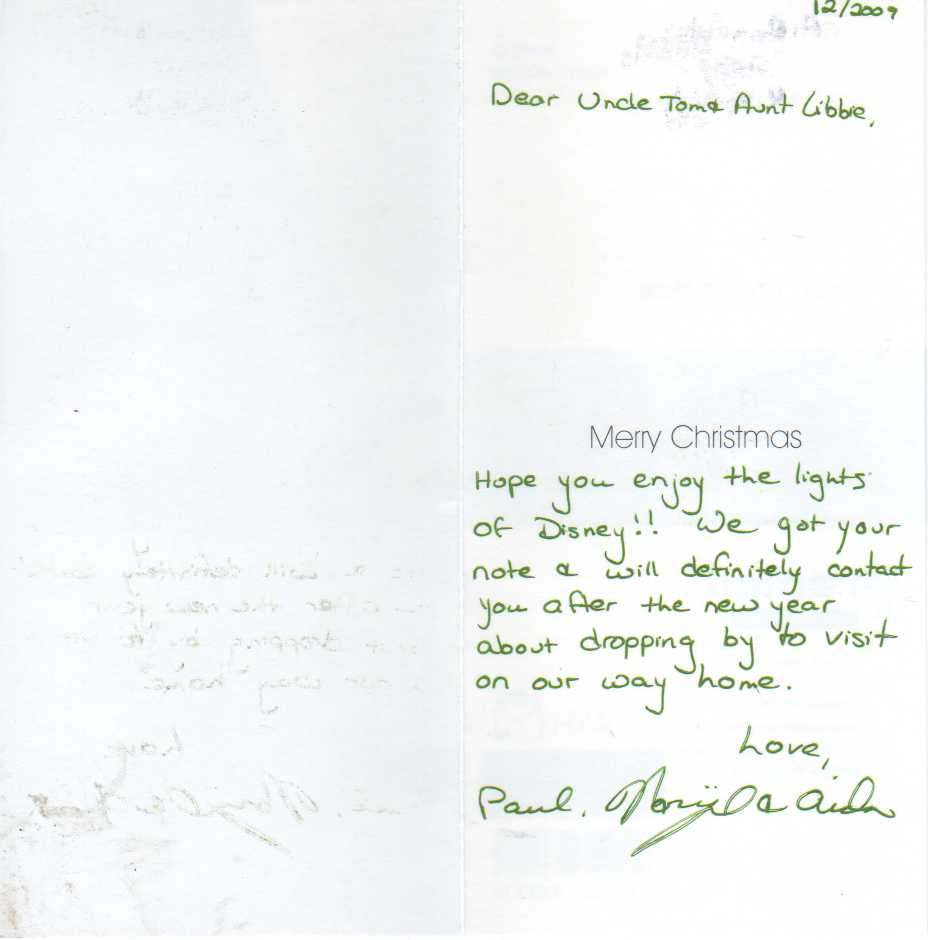 12/2009
Dear Uncle Tom & Aunt Libbie,
Merry Christmas
Hope you enjoy the lights
of Disney!! We got your
note & will definitely contact
you after the new year
about dropping by to visit
on our way home.
Love,
Paul, &